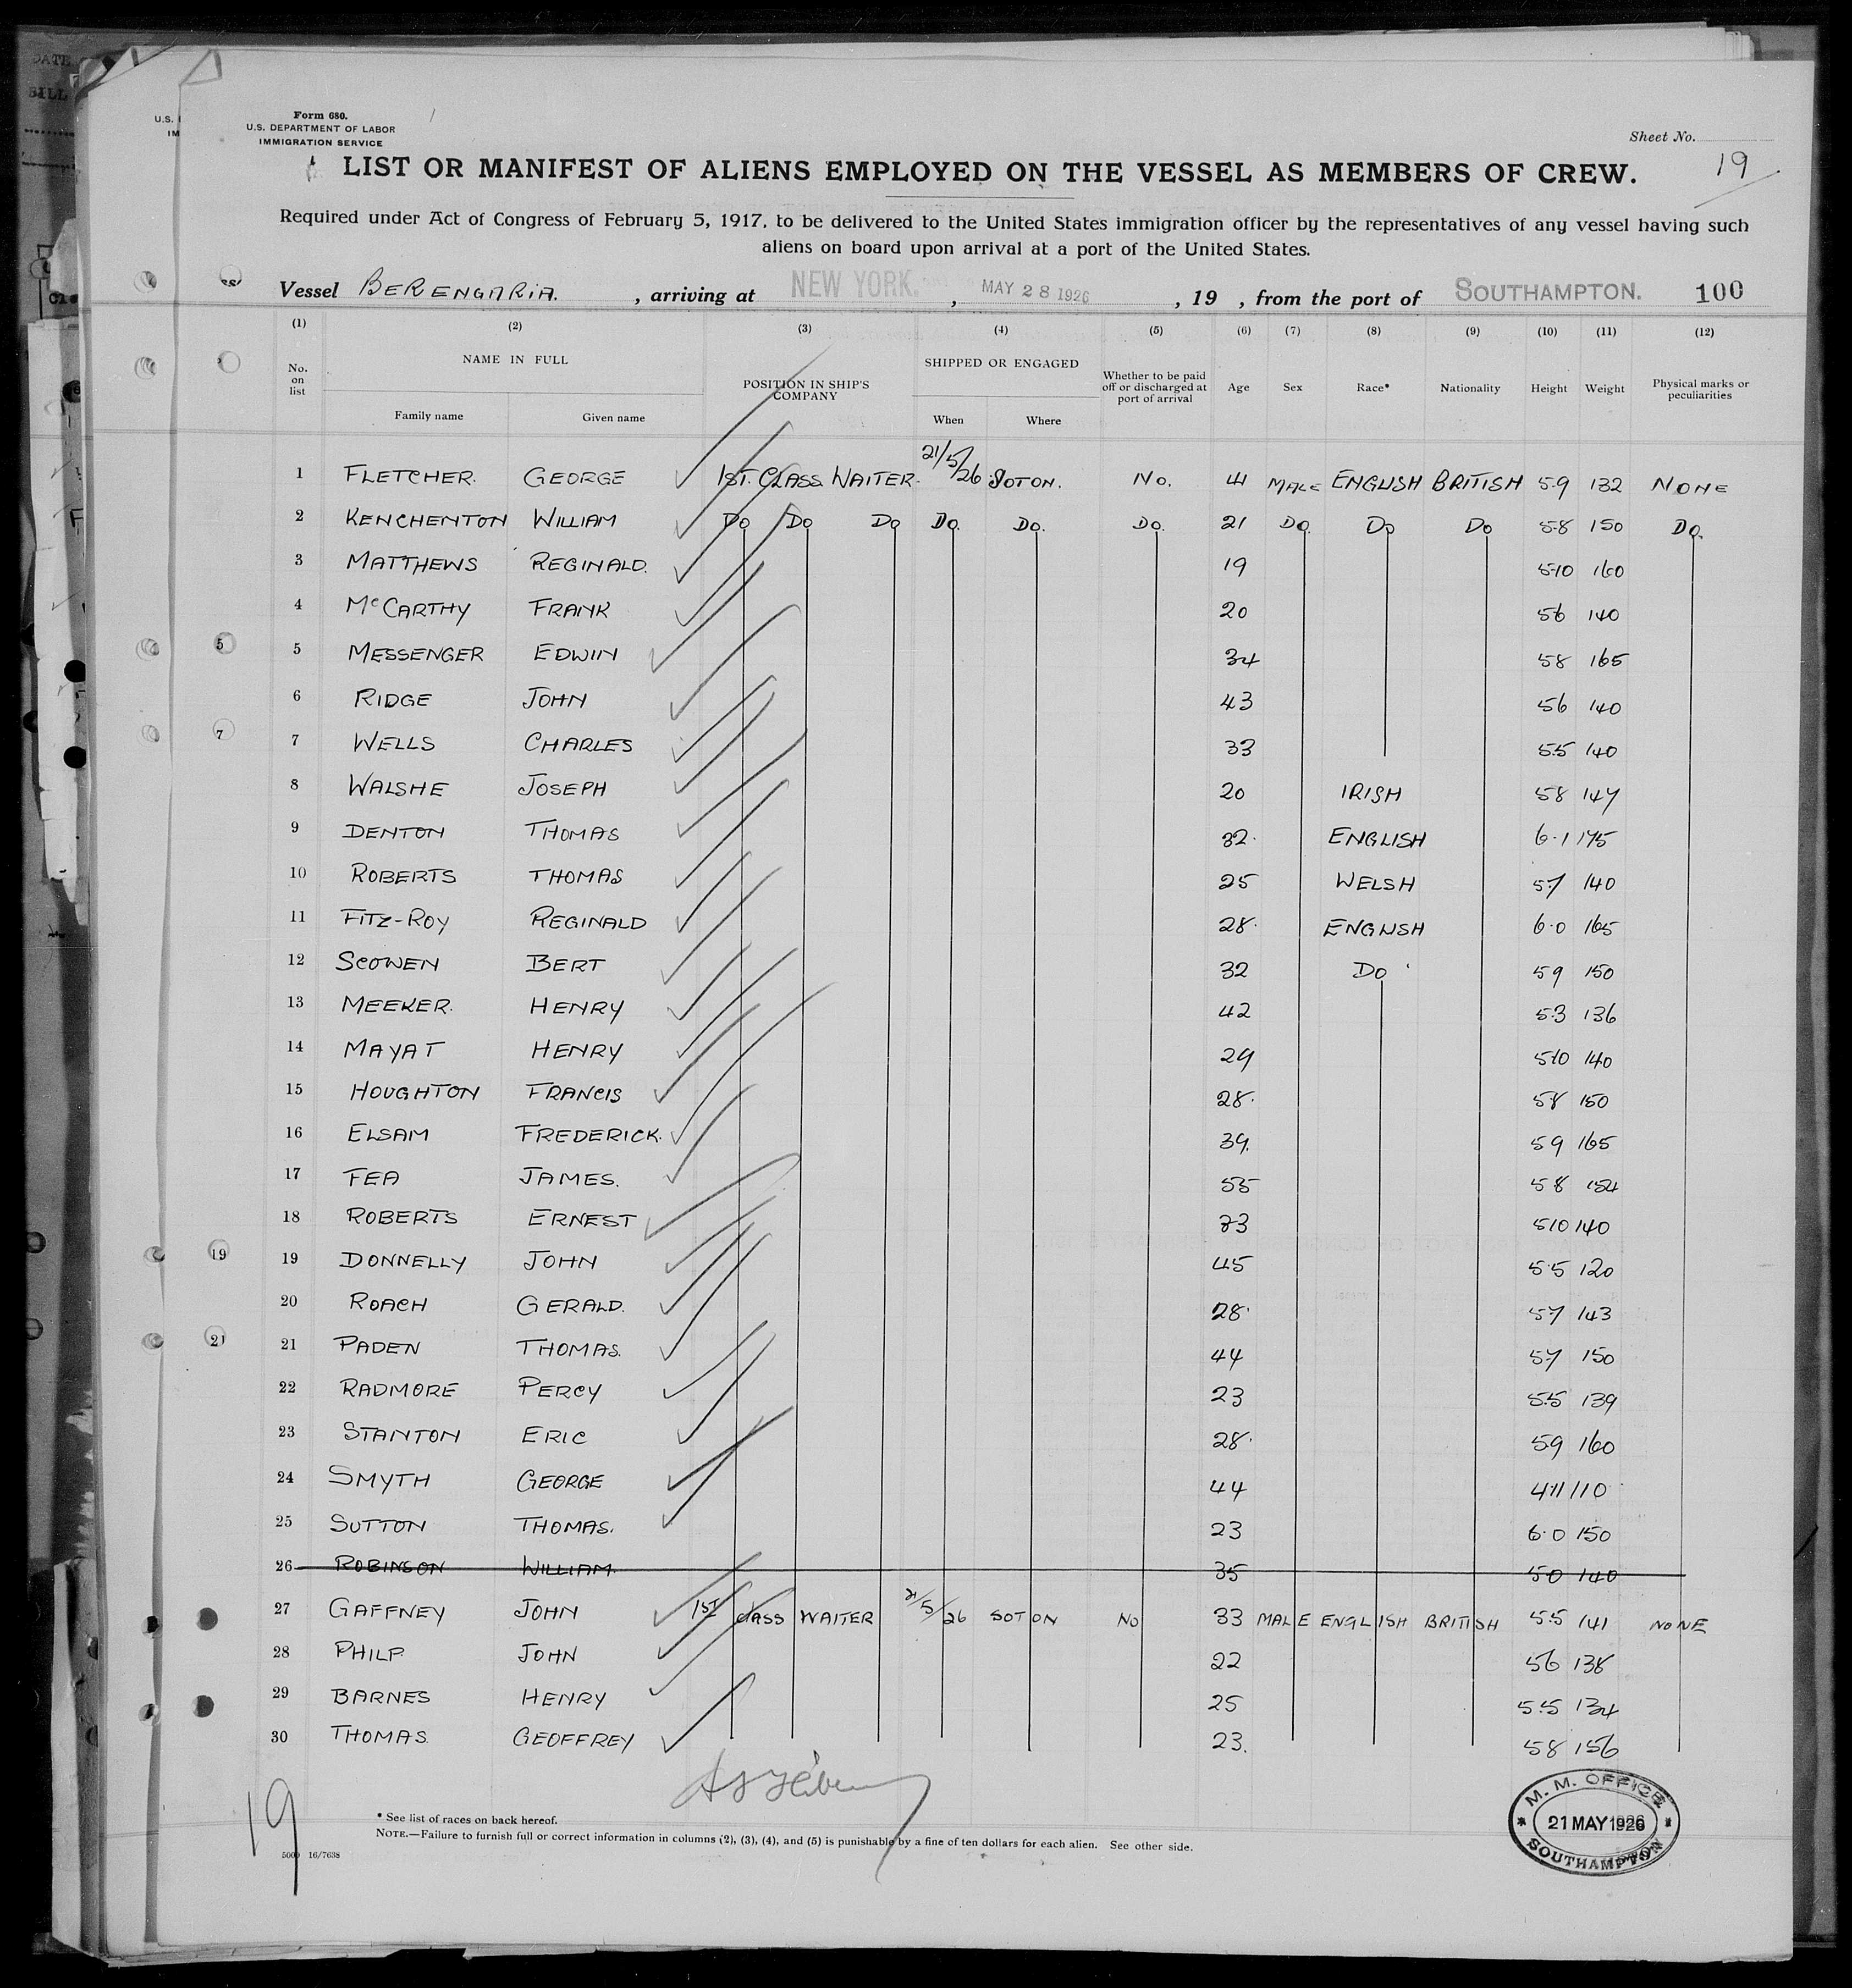 DATE
BILL
U.S.
IM
Form 680.
U.S. DEPARTMENT OF LABOR
IMMIGRATION SERVICE
Sheet No.
19
LIST OR MANIFEST OF ALIENS EMPLOYED ON THE VESSEL AS MEMBERS OF CREW.
Required under Act of Congress of February 5, 1917, to be delivered to the United States immigration officer by the representatives of any vessel having such
aliens on board upon arrival at a port of the United States.
Vessel BERENGARIA. , arriving at NEW YORK. , MAY 28 1926 , 19 , from the port of SOUTHAMPTON. 100
(1) (2) (3) (4) (5) (6) (7) (8) (9) (10) (11) (12)
No. on list NAME IN FULL POSITION IN SHIP'S COMPANY SHIPPED OR ENGAGED Whether to be paid off or discharged at port of arrival Age Sex Race* Nationality Height Weight Physical marks or peculiarities
Family name Given name When Where
1 FLETCHER. GEORGE 1ST. CLASS WAITER. 21/5/26 SOTON. No. 41 MALE ENGLISH BRITISH 5.9 132 NONE
2 KENCHENTON WILLIAM Do Do Do Do. Do. Do. 21 Do. Do Do 5.8 150 Do.
3 MATTHEWS REGINALD. 19 5.10 160
4 McCARTHY FRANK 20 56 140
5 MESSENGER EDWIN 34 58 165
6 RIDGE JOHN 43 56 140
7 WELLS CHARLES 33 5.5 140
8 WALSHE JOSEPH 20 IRISH 58 147
9 DENTON THOMAS 32. ENGLISH 6.1 175
10 ROBERTS THOMAS 25 WELSH 5.7 140
11 FITZ-ROY REGINALD 28. ENGLISH 6.0 165
12 SCOWEN BERT 32 Do 59 150
13 MEEKER. HENRY 42 5.3 136
14 MAYAT HENRY 29 5.10 140
15 HOUGHTON FRANCIS 28. 58 150
16 ELSAM FREDERICK. 39. 59 165
17 FEA JAMES. 55 58 154
18 ROBERTS ERNEST 33 510 140
19 DONNELLY JOHN 45 5.5 120
20 ROACH GERALD. 28. 57 143
21 PADEN THOMAS. 44 5.7 150
22 RADMORE PERCY 23 5.5 139
23 STANTON ERIC 28. 59 160
24 SMYTH GEORGE 44 4.11 110
25 SUTTON THOMAS. 23 6.0 150
26 ROBINSON WILLIAM. 35 5.0 140
27 GAFFNEY JOHN 1ST CLASS WAITER 21/5/26 SOTON NO 33 MALE ENGLISH BRITISH 5.5 141 NONE
28 PHILP JOHN 22 56 138
29 BARNES HENRY 25 5.5 134
30 THOMAS GEOFFREY 23. 58 156
19
* See list of races on back hereof.
NOTE.—Failure to furnish full or correct information in columns (2), (3), (4), and (5) is punishable by a fine of ten dollars for each alien. See other side.
5000 16/7638
M. M. OFFICE
21 MAY 1926
SOUTHAMPTON
5
7
19
21